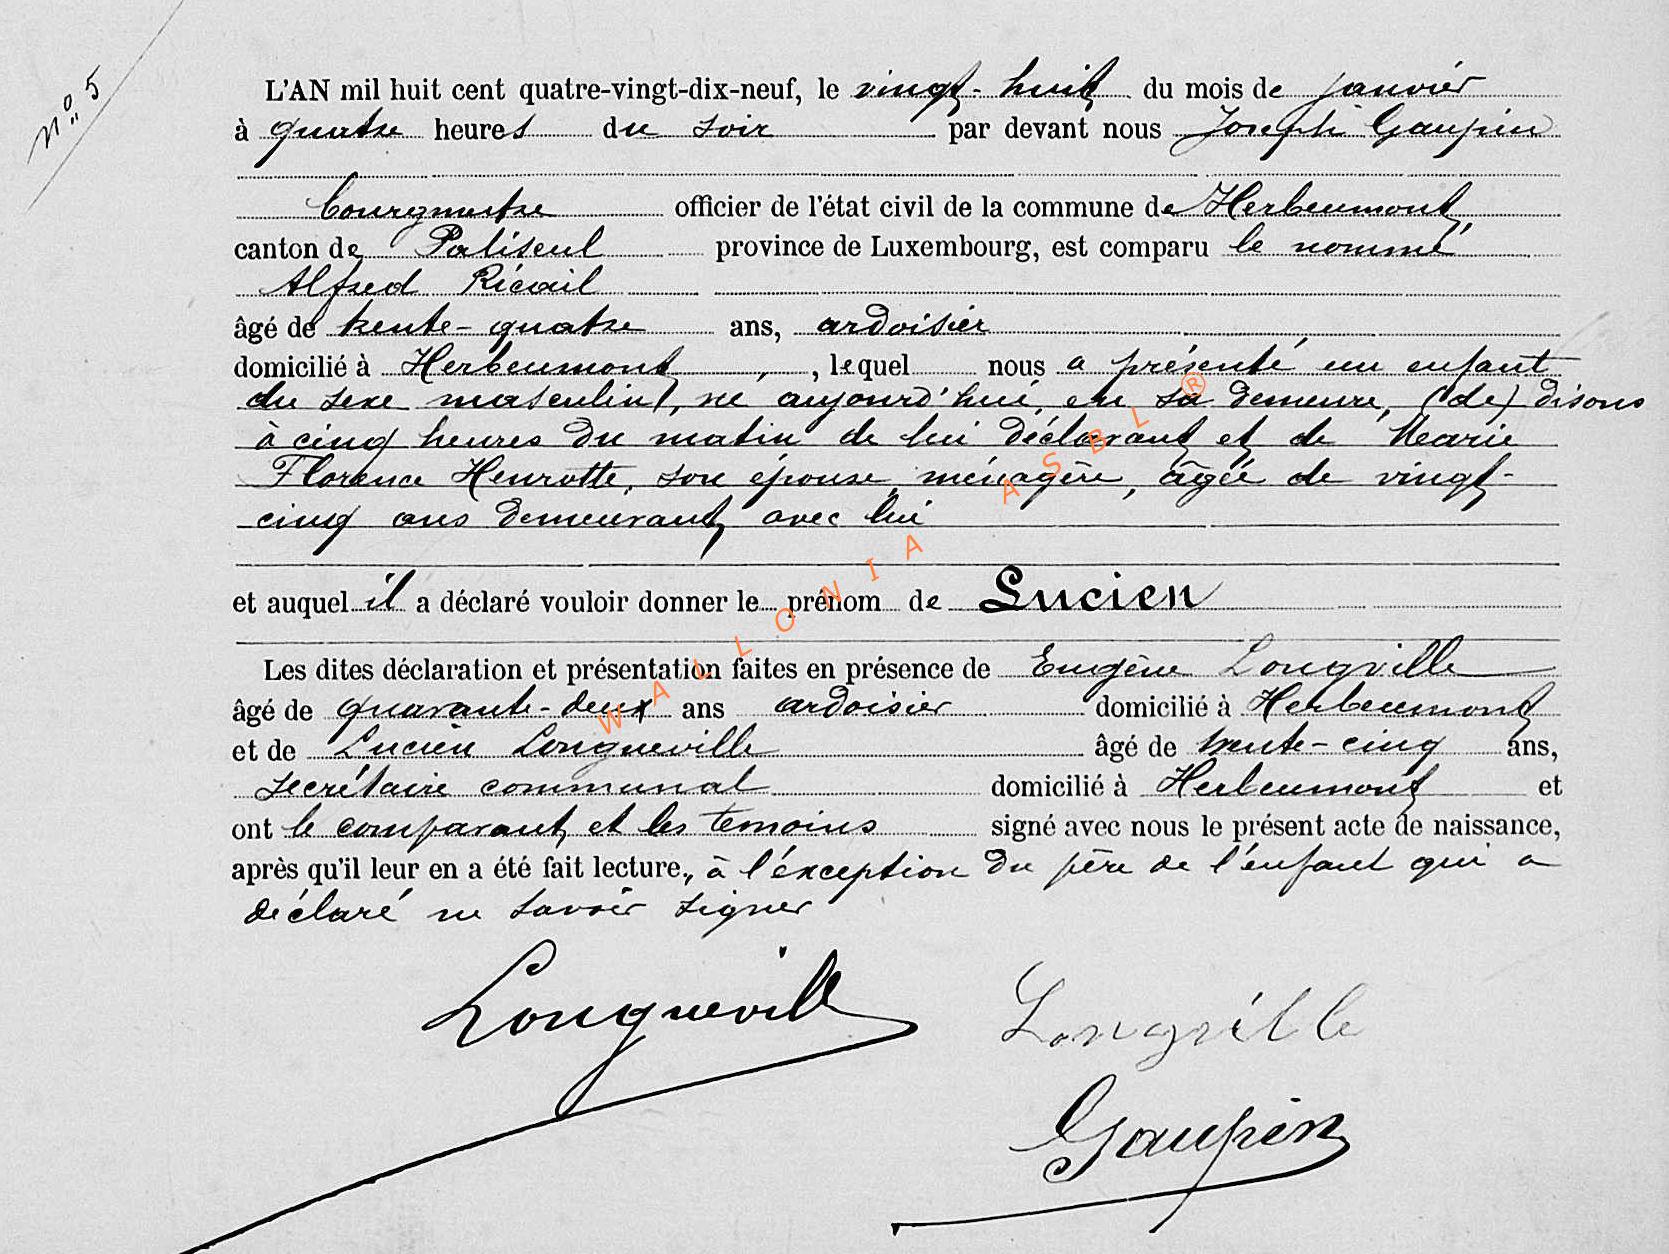 N° 5
L'AN mil huit cent quatre-vingt-dix-neuf, le vingt-huit du mois de janvier
à quatre heures du soir par devant nous Joseph Gaupin
bourgmestre officier de l'état civil de la commune de Herbeumont,
canton de Paliseul province de Luxembourg, est comparu le nommé
Alfred Ricail
âgé de trente-quatre ans, ardoisier
domicilié à Herbeumont, lequel nous a présenté un enfant
du sexe masculin, né aujourd'hui, en sa demeure, (de) disons
à cinq heures du matin de lui déclarant et de Marie
Florence Henrotte, son épouse, ménagère, âgée de vingt-
cinq ans demeurant avec lui
et auquel il a déclaré vouloir donner le prénom de Lucien
Les dites déclaration et présentation faites en présence de Eugène Longville
âgé de quarante-deux ans ardoisier domicilié à Herbeumont
et de Lucien Longueville âgé de trente-cinq ans,
secrétaire communal domicilié à Herbeumont et
ont le comparant et les temoins signé avec nous le présent acte de naissance,
après qu'il leur en a été fait lecture., à l'éxception du père de l'enfant qui a
déclaré ne savoir signer
Longueville Longville
Gaupin
WALLONIA ASBL ®